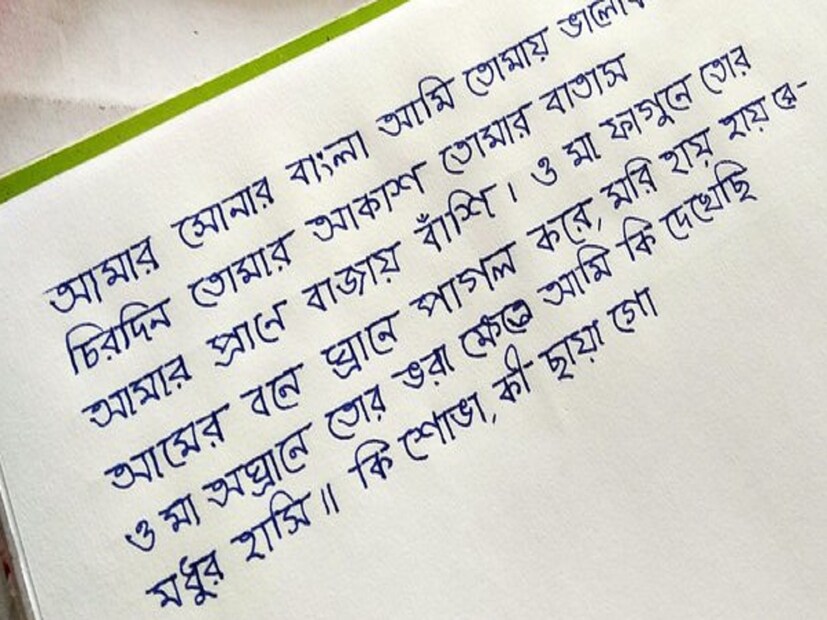 আমার সোনার বাংলা আমি তোমায়
চিরদিন তোমার আকাশ তোমার বাতাস
আমার প্রানে বাজায় বাঁশি। ও মা ফাগুনে তোর
আমের বনে ঘ্রানে পাগল করে, মরি হায় হায় রে-
ও মা অঘ্রানে তোর ভরা ক্ষেতে আমি কি দেখেছি
মধুর হাসি॥ কি শোভা, কী ছায়া গো